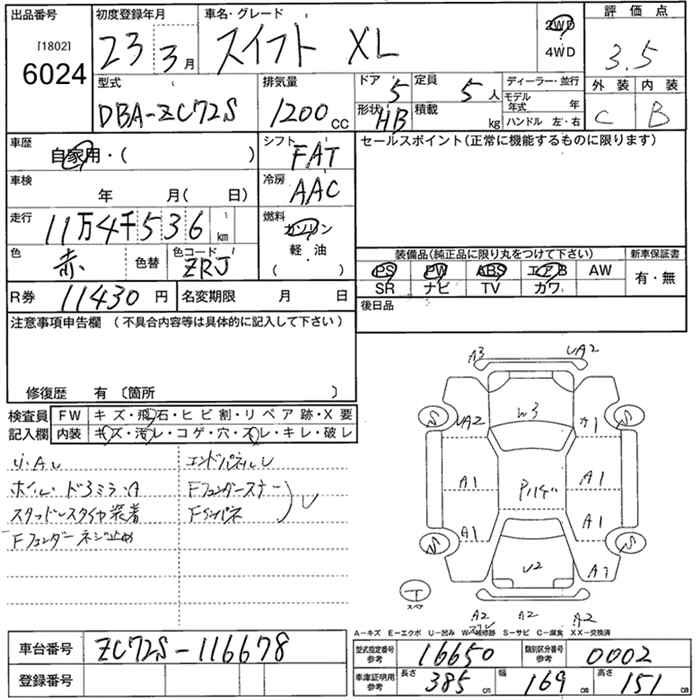 出品番号
[1802]
6024
初度登録年月
23 3月
車名・グレード
スイフト XL
2WD
4WD
評価点
3.5
外装 内装
C B
型式
DBA-ZC72S
排気量
1200cc
ドア 5
定員 5人
形状 HB
積載 kg
ディーラー・並行
モデル年式 年
ハンドル 左・右
車歴
自家用・( )
シフト
FAT
車検
年 月( 日)
冷房
AAC
走行
11万4千536km
燃料
ガソリン
軽・油
( )
色
赤
色替
色コード
ZRJ
R券 11430円
名変期限 月 日
セールスポイント(正常に機能するものに限ります)
装備品(純正品に限り丸をつけて下さい)
新車保証書
PS PW ABS エアB AW
SR ナビ TV カワ
有・無
後日品
注意事項申告欄(不具合内容等は具体的に記入して下さい)
修復歴 有〔箇所 〕
検査員記入欄
FW キズ・飛石・ヒビ割・リペア跡・X要
内装 キズ・汚レ・コゲ・穴・スレ・キレ・破レ
ホイル・ドアミラーA
スタッドレスタイヤ装着
Fフェンダーネジ止め
エンドパネルU
Fフェンダーステー
A3
UA2
W3
UA2
カ1
A1
A1
A1
A1
U2
S
S
S
S
T
スペア
A2
A2
A2
A-キズ E-エクボ U-凹み W-補修跡 S-サビ C-腐食 XX-交換済
車台番号 ZC72S-116678
登録番号
型式指定番号 参考 16650
類別区分番号 参考 0002
車庫証明用 参考
長さ 385cm
幅 169cm
高さ 151cm